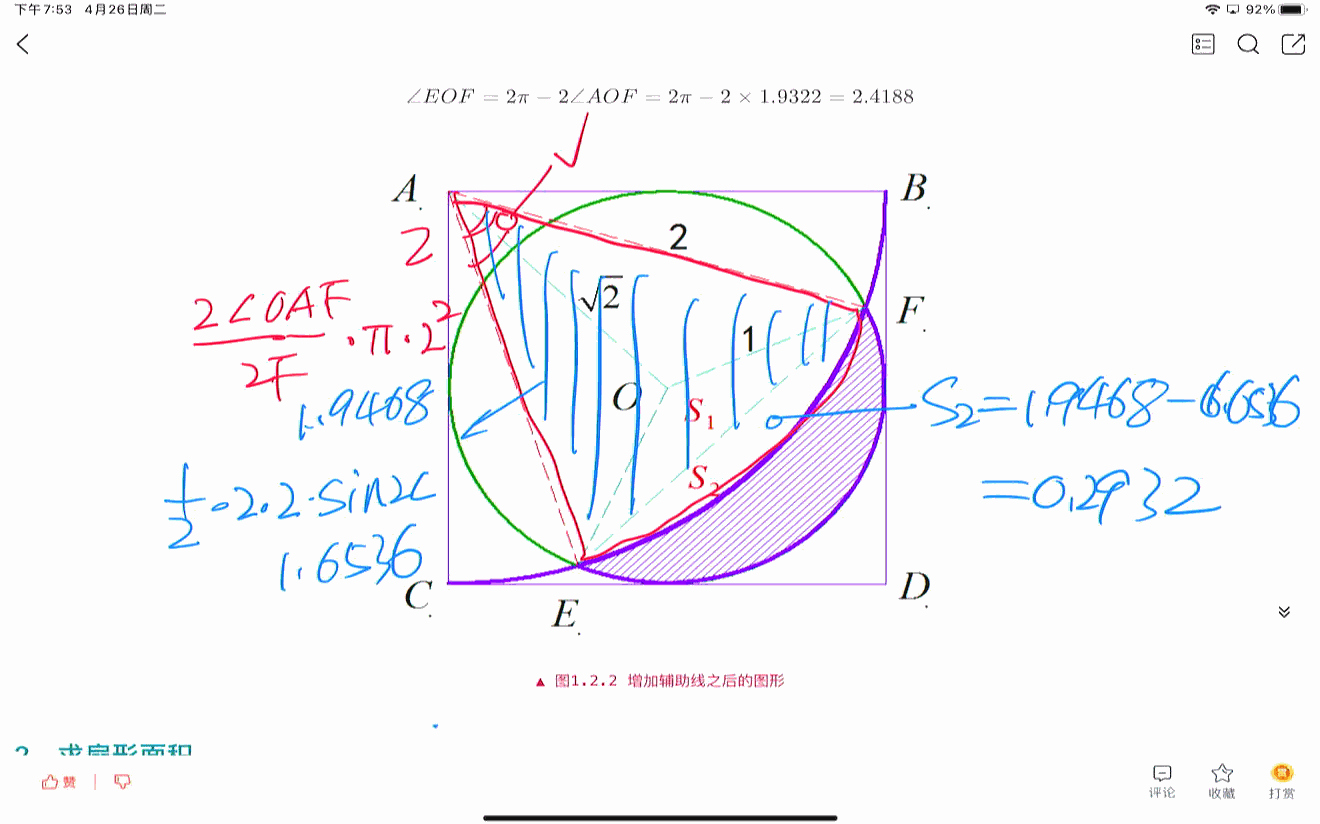 下午7:53 4月26日周二
92%
∠EOF = 2π − 2∠AOF = 2π − 2 × 1.9322 = 2.4188
A.
B.
2
2
√2
F.
2∠OAF
·π·2²
1
2π
O
S₁
1.9468
S₂=1.9468-1.6536
S₂
½·2·2·sin2
=0.2932
1.6536
C.
D.
E.
▲ 图1.2.2 增加辅助线之后的图形
2 求扇形面积
赞
评论
收藏
赏
打赏